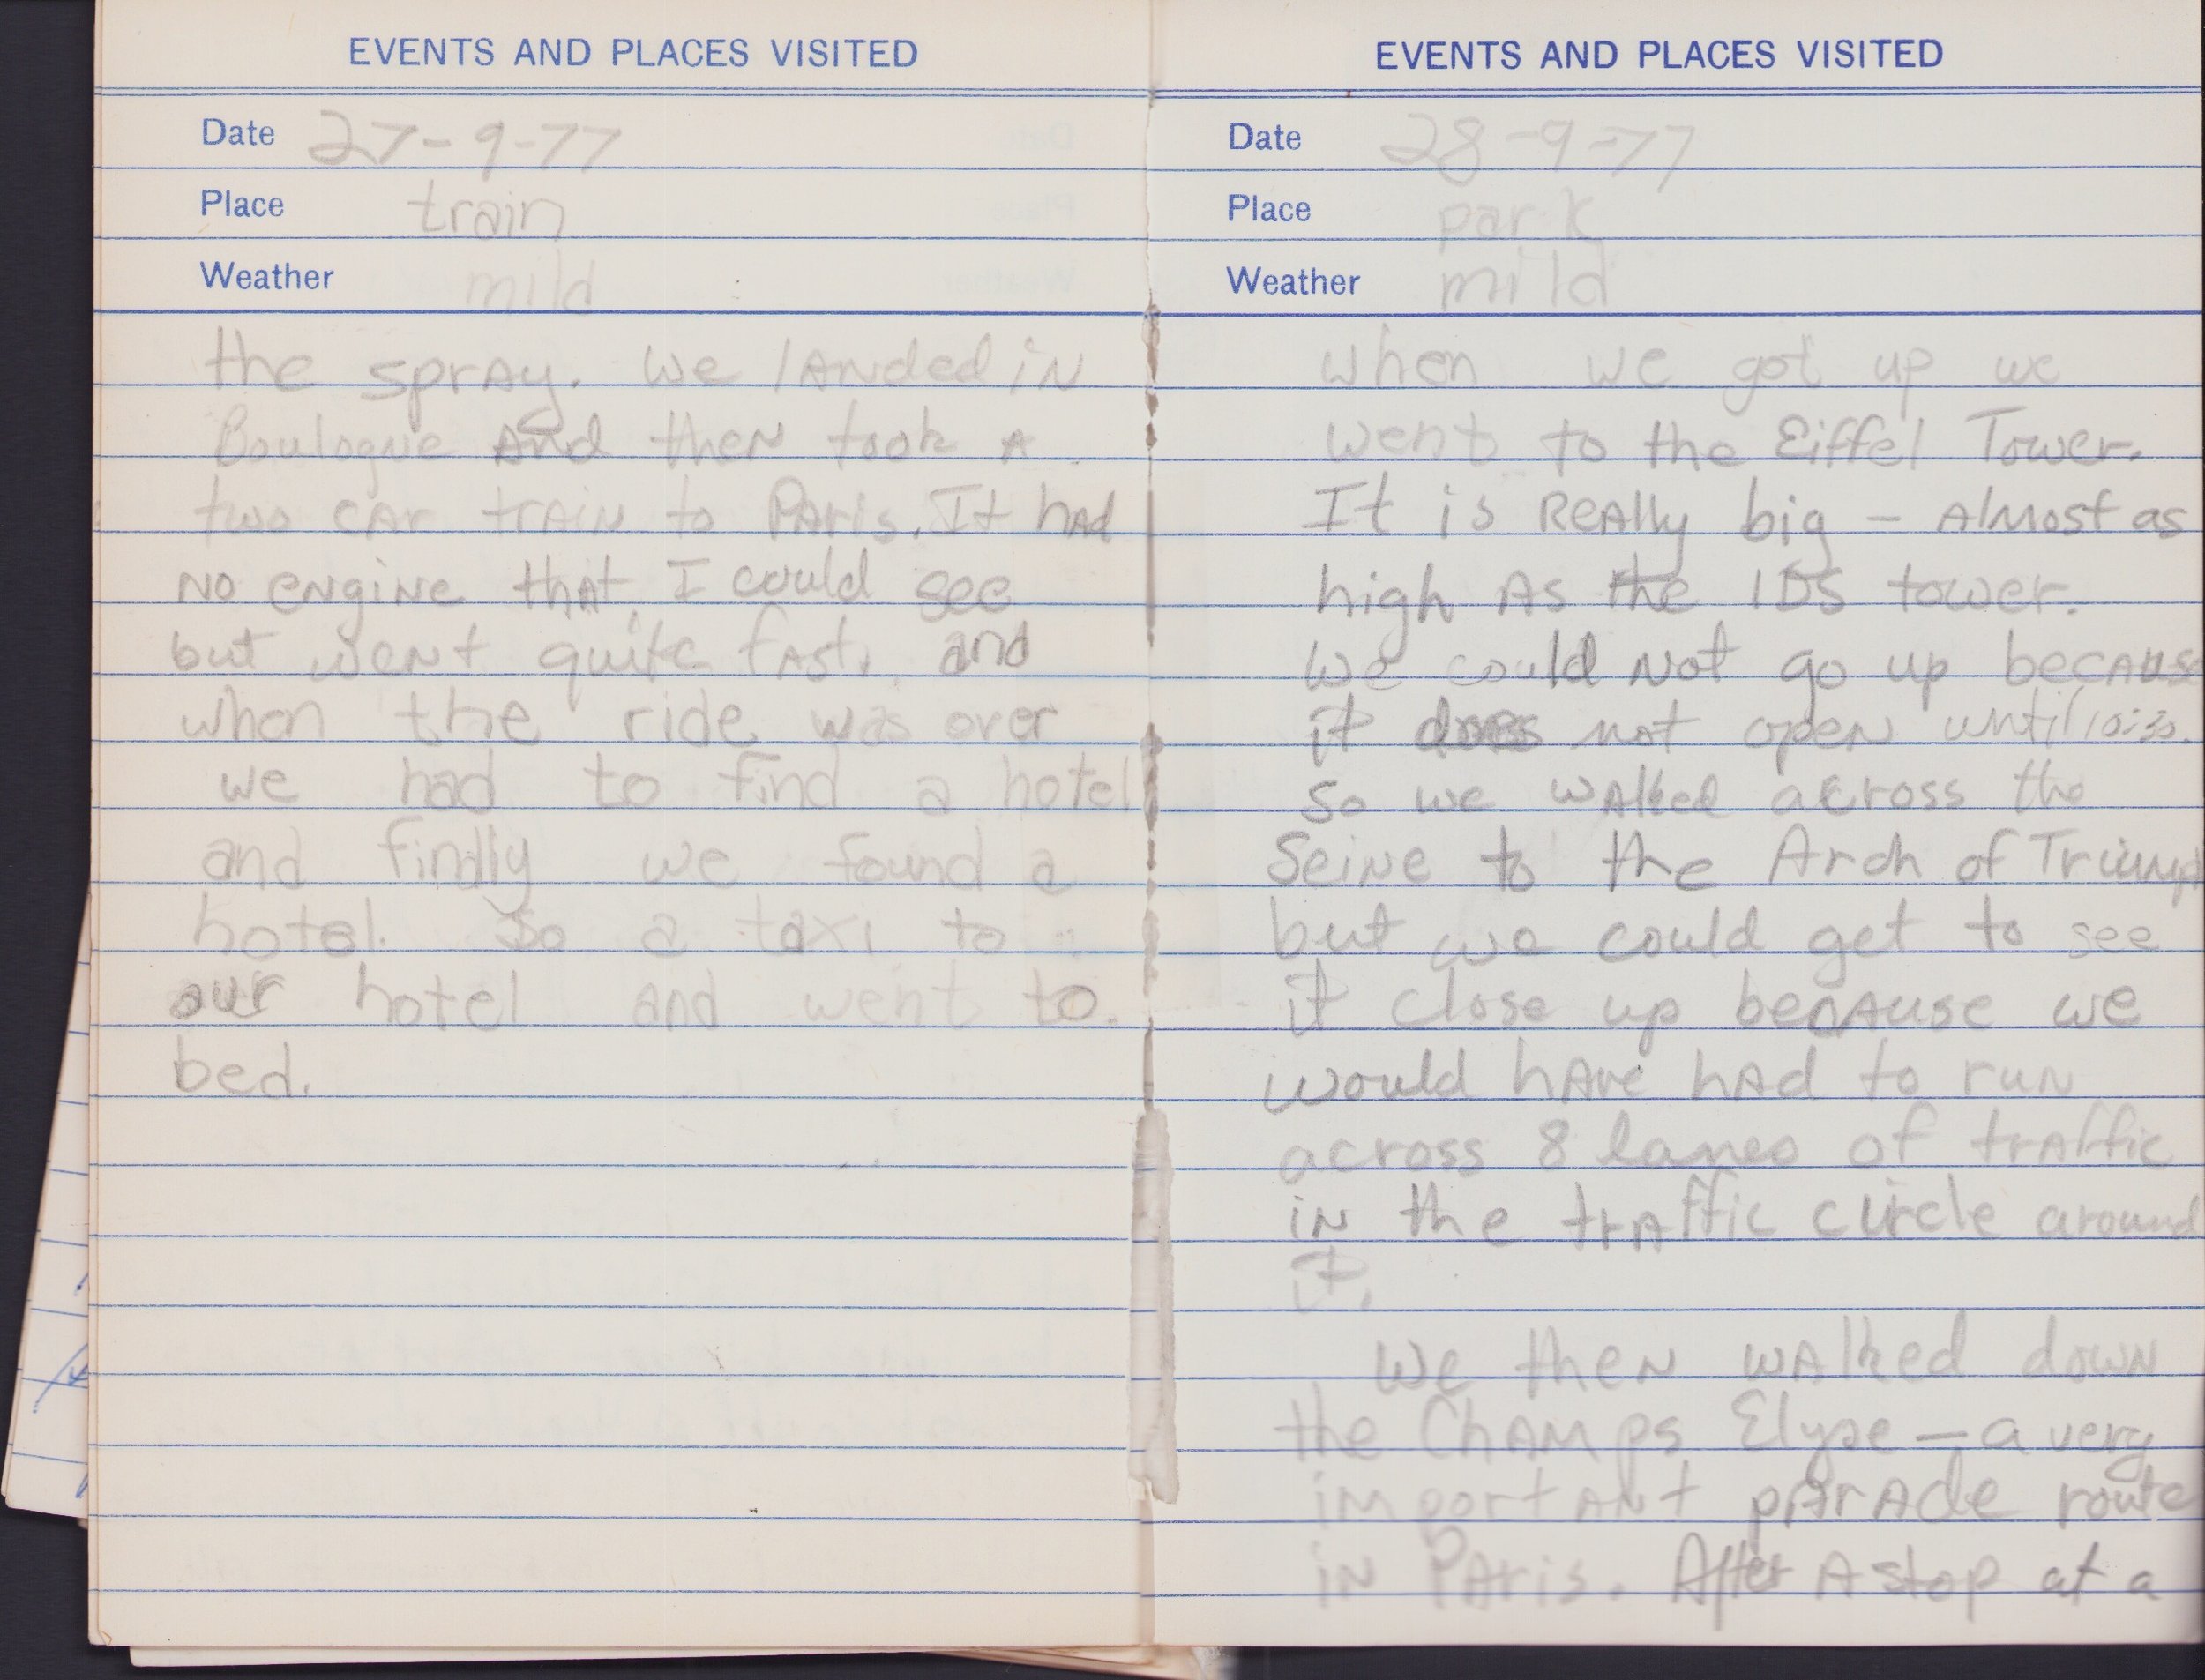 EVENTS AND PLACES VISITED
Date 27-9-77
Place train
Weather mild
the spray. We landed in
Boulogne And then took A
two car train to Paris. It had
no engine that I could see
but went quite fast, and
when the ride was over
we had to find a hotel
and findly we found a
hotel. So a taxi to
our hotel and went to.
bed.
EVENTS AND PLACES VISITED
Date 28-9-77
Place park
Weather mild
when we got up we
went to the Eiffel Tower.
It is Really big - Almost as
high As the IDS tower.
We could Not go up because
it does not open until 10:30.
So we walked across the
Seine to the Arch of Triump
but we could get to see
it close up because we
would have had to run
across 8 lanes of traffic
in the traffic circle around
it.
We then walked down
the Champs Elyse - a very
important parade route
in Paris. After A stop at a